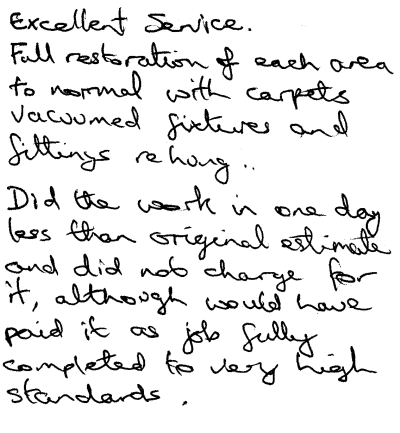 Excellent Service.
Full restoration of each area
to normal with carpets
vacuumed fixtures and
fittings rehung..
Did the work in one day
less than original estimate
and did not charge for
it, although would have
paid it as job fully
completed to very high
standards.